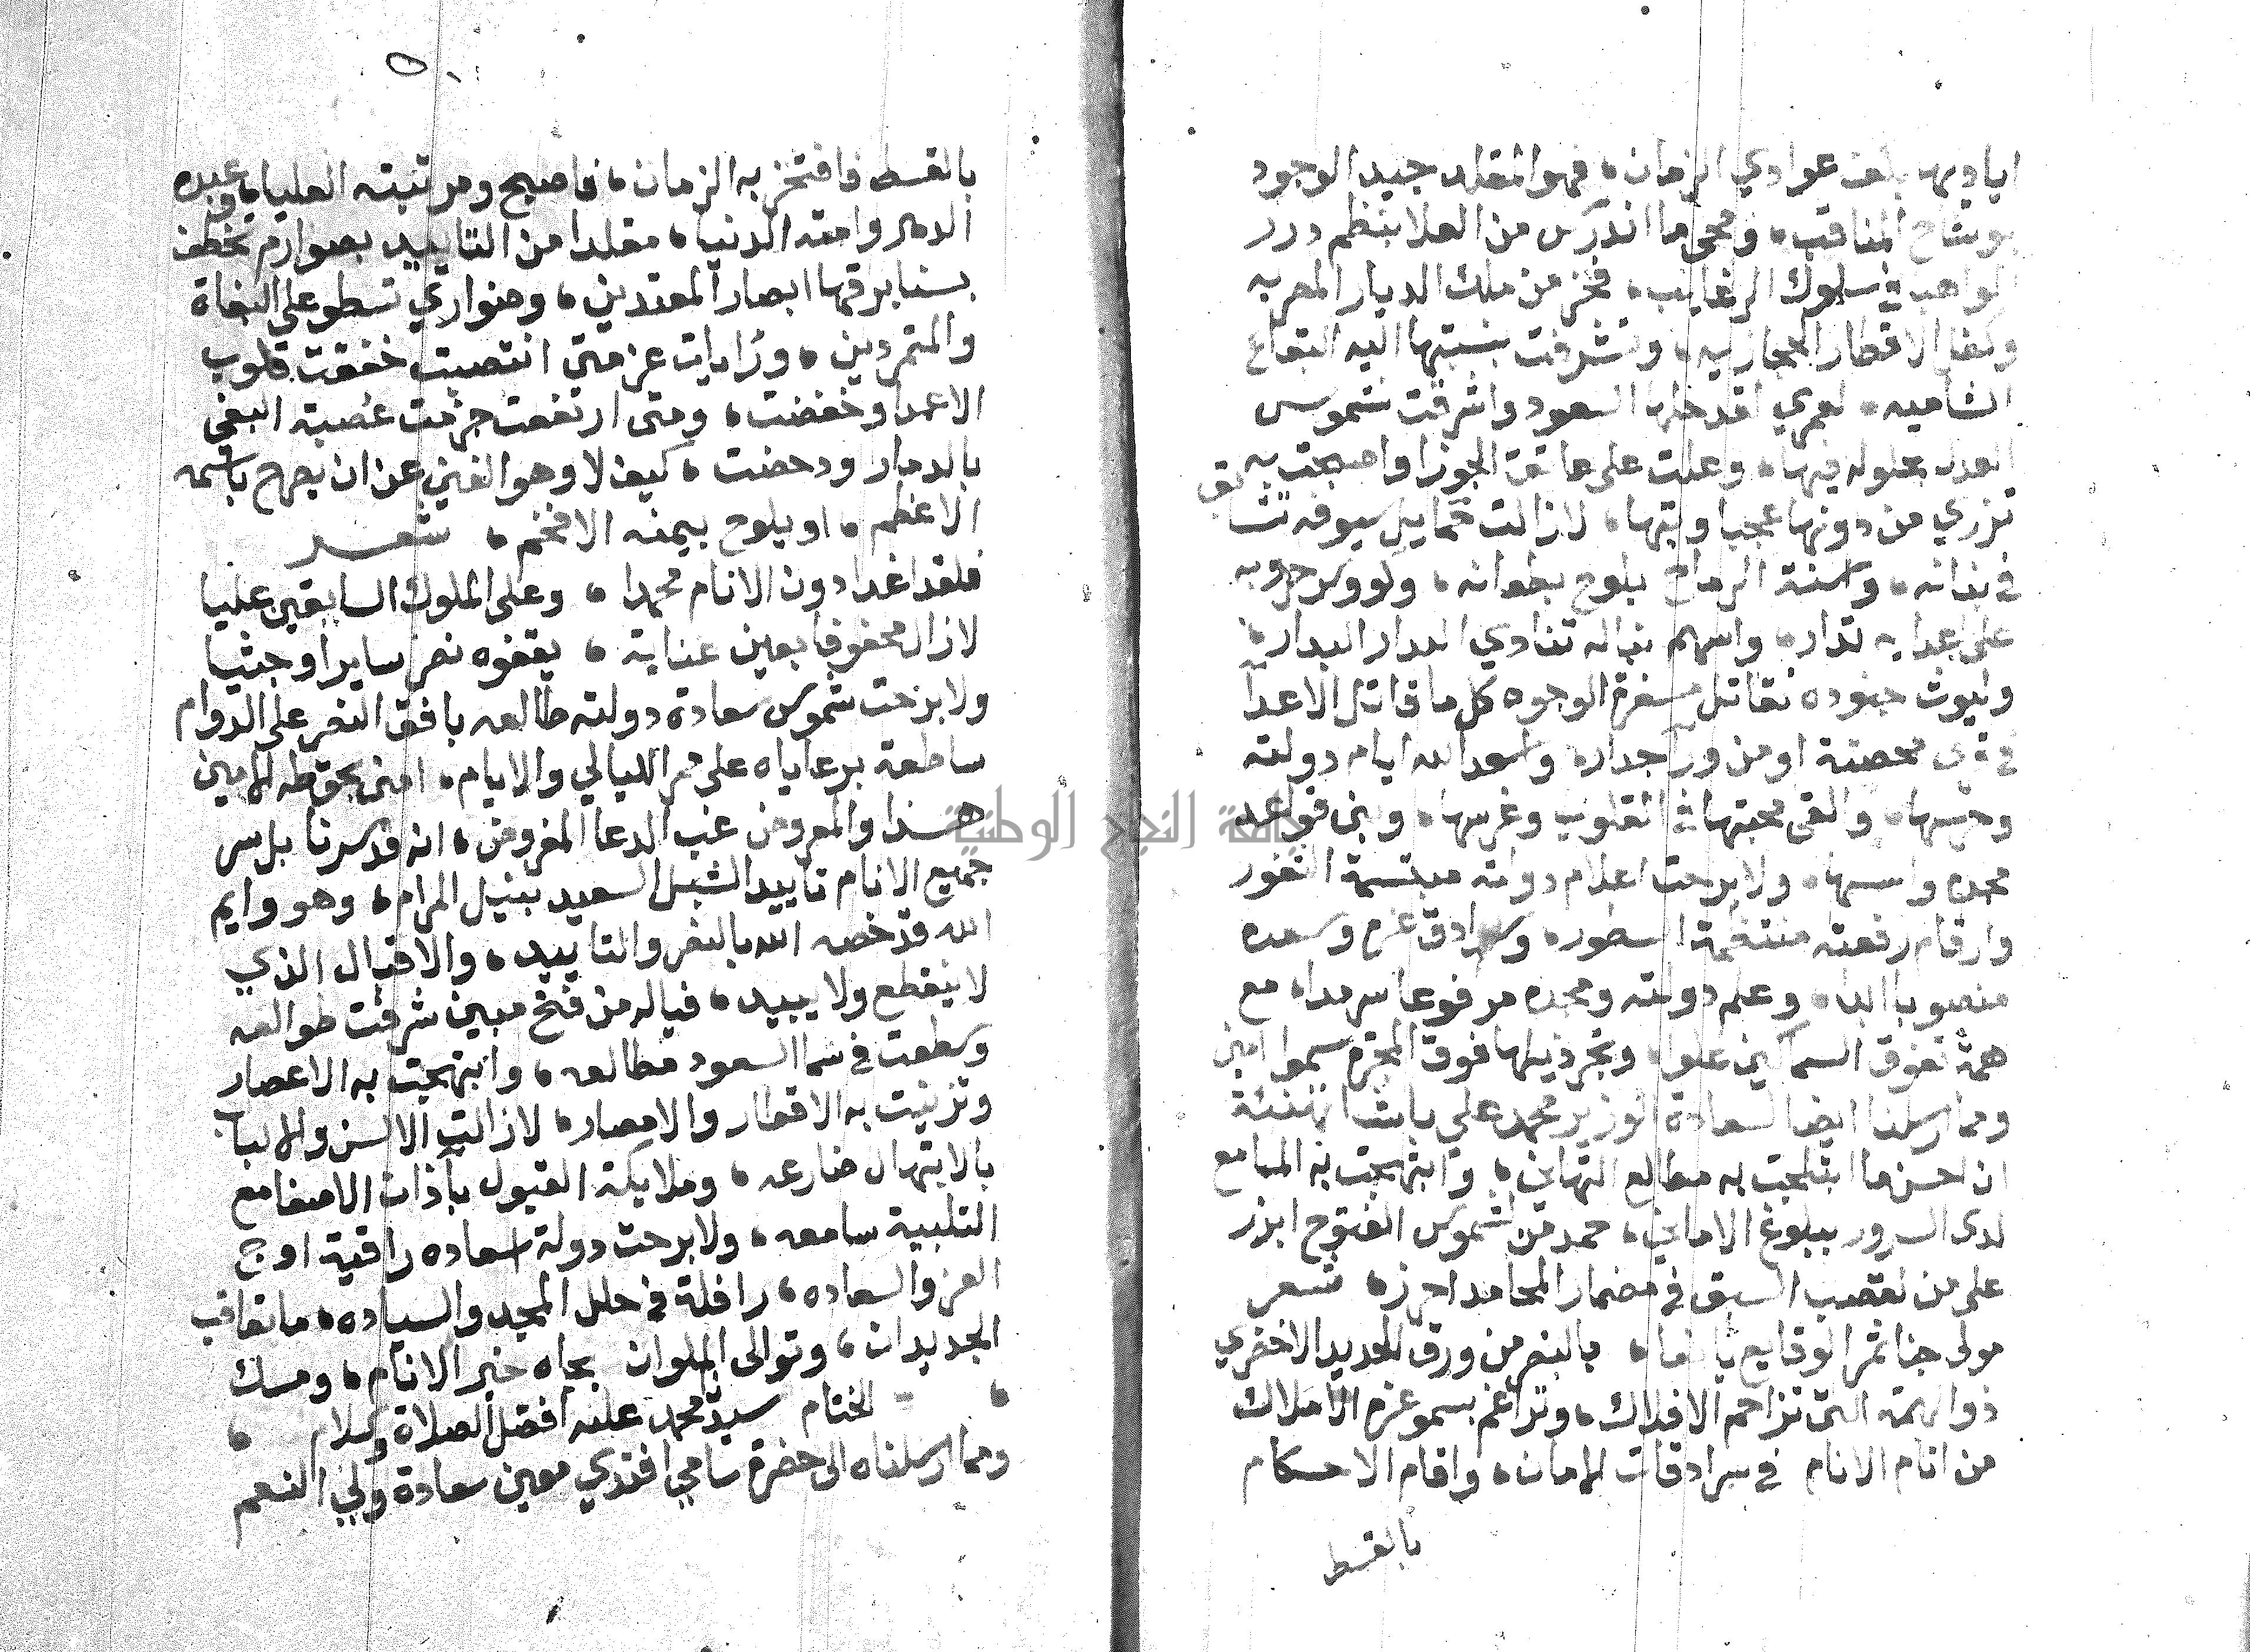 اياديه عوادي الزمان، فهو المقلد جيد الوجود
بوشاح المناقب، ومحي ما اندرس من العلا بنظم درر
المواهب في سلوك الرغايب، فخر من ملك الديار المصريه
وكفل الاقطار الحجازيه، وتشرفت بنسبتها اليه البقاع
الشاميه، لعمري لقد حلها السعود واشرقت شموس
العدل بحلوله فيها، وعلت على عاتق الجوزا واصبحت به
تزري من دونها عجبا وتيها، لازالت حمايل سيوفه تشابق
في بنانه، واسنة الرماح يلوح بطعانه، وكووس حروبه
على اعدايه تداره واسهم نباله تنادي البدار البدار،
وليوث جنوده تقاتل مسفرة الوجوه كل ما قاتل الاعدا
في قرى محصنة او من ورا جداره واسعد الله ايام دولته
وحرسها، والقى محبتها في القلوب وغرسها، وبنى قواعد
مجده واسسها، ولا برحت اعلام دولته مبتسمة الثغور
وارقام رفعته منتظمة السطوره وسرادق عزه وسعده
منصوبا ابدا، وعلم دولته ومجده مرفوعا سرمدا، مع
همة تفوق السماكين علوا، وتجر ذيلها فوق المجره سموا امين
ومما ارسلنا ايضا لسعادة الوزير محمد علي باشا تهنئة
ان احسن ما ابتلجت به مطالع التهاني، وابتهجت به المجامع
لدى السرور ببلوغ الاماني، حمد من شموس الفتوح ابرز
على من لقصب السبق في مضمار المحامد احرز، شعر
مولى جنا ثمر الوقايع يانعا، بالنصر من ورق الحديد الاخضري
ذو الهمة التي تزاحم الافلاك، وتراغم بسمو عزه الاملاك
من انام الانام في سرادقات الامان، واقام الاحكام
بالقسط
بالقسط فافتخر به الزمان، فاصبح ومرتبته العلياء، وعبده
الدهر وامته الدنيا، مقلدا من التاييد بصوارم يخطف
بسنا برقها ابصار المعتدين، وضواري تسطو على البغاة
والمتمردين، ورايات عز متى انتصبت خفقت قلوب
الاعدا وخفضت، ومتى ارتفعت جزمت عصبة البغي
بالدمار ودحضت، كيف لا وهو الغني عن ان يصرح باسمه
الاعظم، او يلوح بيمنه الافخم، شعر
فلقد غدا دون الانام محمدا، وعلى الملوك السابقين عليا
لازال محفوفا بعين عناية، يقفوه نصر سايرا وجثيا
ولا برحت شموس سعادة دولته طالعه بافق النصر على الدوام
ساطعة برعاياه على مر الليالي والايام، امين بحق طه الامين
هذا والمعروض غب الدعا المفروض، انه قد سرنا بل سر
جميع الانام تاييد الشبل السعيد بنيل المرام، وهو وايم
الله قد خصه الله بالنصر والتاييد، والاقبال الذي
لا ينقطع ولا يبيد، فياله من فتح مبين شرقت طوالعه
وسطعت في سما السعود مطالعه، وابتهجت به الاعصار
وتزينت به الاقطار والامصار، لازالت الالسن والالباب
بالابتهال ضارعه، وملايكة القبول بآذان الاصغا مع
التلبية سامعه، ولا برحت دولة اسعاده راقية اوج
العز والسعاده، رافلة في حلل المجد والسياده، ما تعاقب
الجديدان، وتوالى الملوان بجاه خير الانام، ومسك
الختام سيدنا محمد عليه افضل الصلاة والسلام
ومما ارسلناه الى حضرة سامي افندي معين سعادة ولي النعم
جامعة النجاح الوطنية